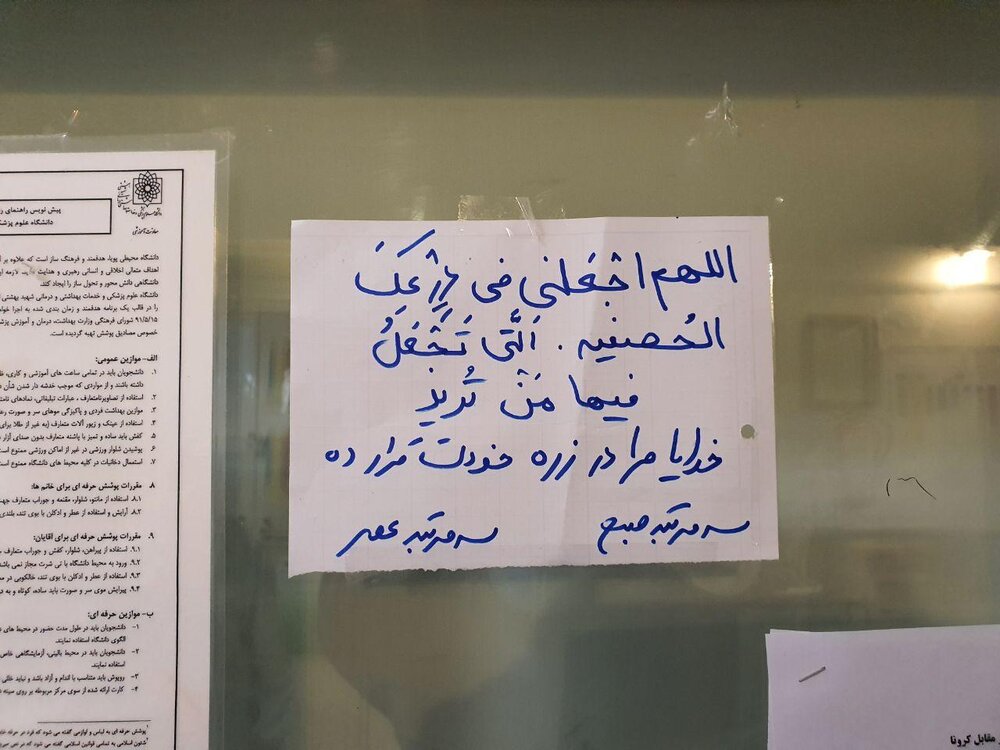 اللهم اجْعَلني فی دِرْعِکَ
الحُصینیه . اَلَّتی تَجْعَلُ
فیها مَنْ تُریدِ
خدایا مرا در زره خودت قرار ده
سه مرتبه صبح
سه مرتبه عصر
پیش نویس راهنمای
دانشگاه علوم پزشک
معاونت آموزشی
دانشگاه محیطی پویا، هدفمند و فرهنگ ساز است که علاوه بر
اهداف متعالی اخلاقی و انسانی رهبری و هدایت
دانشگاهی دانش محور و تحول ساز را ایجاد کند.
دانشگاه علوم پزشکی و خدمات بهداشتی و درمانی شهید بهشتی
را در قالب یک برنامه هدفمند و زمان بندی شده به اجرا
۹۱/۵/۱۵ شورای فرهنگی وزارت بهداشت، درمان و آموزش
خصوص مصادیق پوشش تهیه گردیده است.
الف- موازین عمومی:
۱. دانشجویان باید در تمامی ساعت های آموزشی و کاری،
داشته باشند و از مواردی که موجب خدشه دار شدن شأن
۲. استفاده از تصاویرنامتعارف ، عبارات تبلیغاتی، نمادهای
۳. موازین بهداشت فردی و پاکیزگی موهای سر و صورت
۴. استفاده از عینک و زیور آلات متعارف (به غیر از طلا برای
۵. کفش باید ساده و تمیز با پاشنه متعارف بدون صدای آزار
۶. پوشیدن شلوار ورزشی در غیر از اماکن ورزشی ممنوع است
۷. استعمال دخانیات در کلیه محیط های دانشگاه ممنوع است
۸. مقررات پوشش حرفه ای برای خانم ها:
۸.۱. استفاده از مانتو، شلوار، مقنعه و جوراب متعارف
۸.۲. آرایش و استفاده از عطر و ادکلن با بوی تند، بلندی
۹. مقررات پوشش حرفه ای برای آقایان:
۹.۱. استفاده از پیراهن، شلوار، کفش و جوراب متعارف
۹.۲. ورود به محیط دانشگاه با تی شرت مجاز نمی
۹.۳. استفاده از عطر و ادکلن با بوی تند، خالکوبی در
۹.۴. پیرایش موی سر و صورت باید ساده، کوتاه و به
ب- موازین حرفه ای:
۱- دانشجویان باید در طول مدت حضور در محیط های
الگوی دانشگاه استفاده نمایند.
۲- دانشجویان باید در محیط بالینی، آزمایشگاهی خاص
استفاده نمایند.
۳- روپوش باید متناسب با اندام و آزاد باشد و نباید خللی
۴- کارت ارائه شده از سوی مرکز مربوطه بر روی سینه
پوشش حرفه ای به لباس و لوازمی گفته می شود که فرد در حرفه
شئون اسلامی به تمامی قوانین اسلامی گفته می شود که
مقابل کرونا